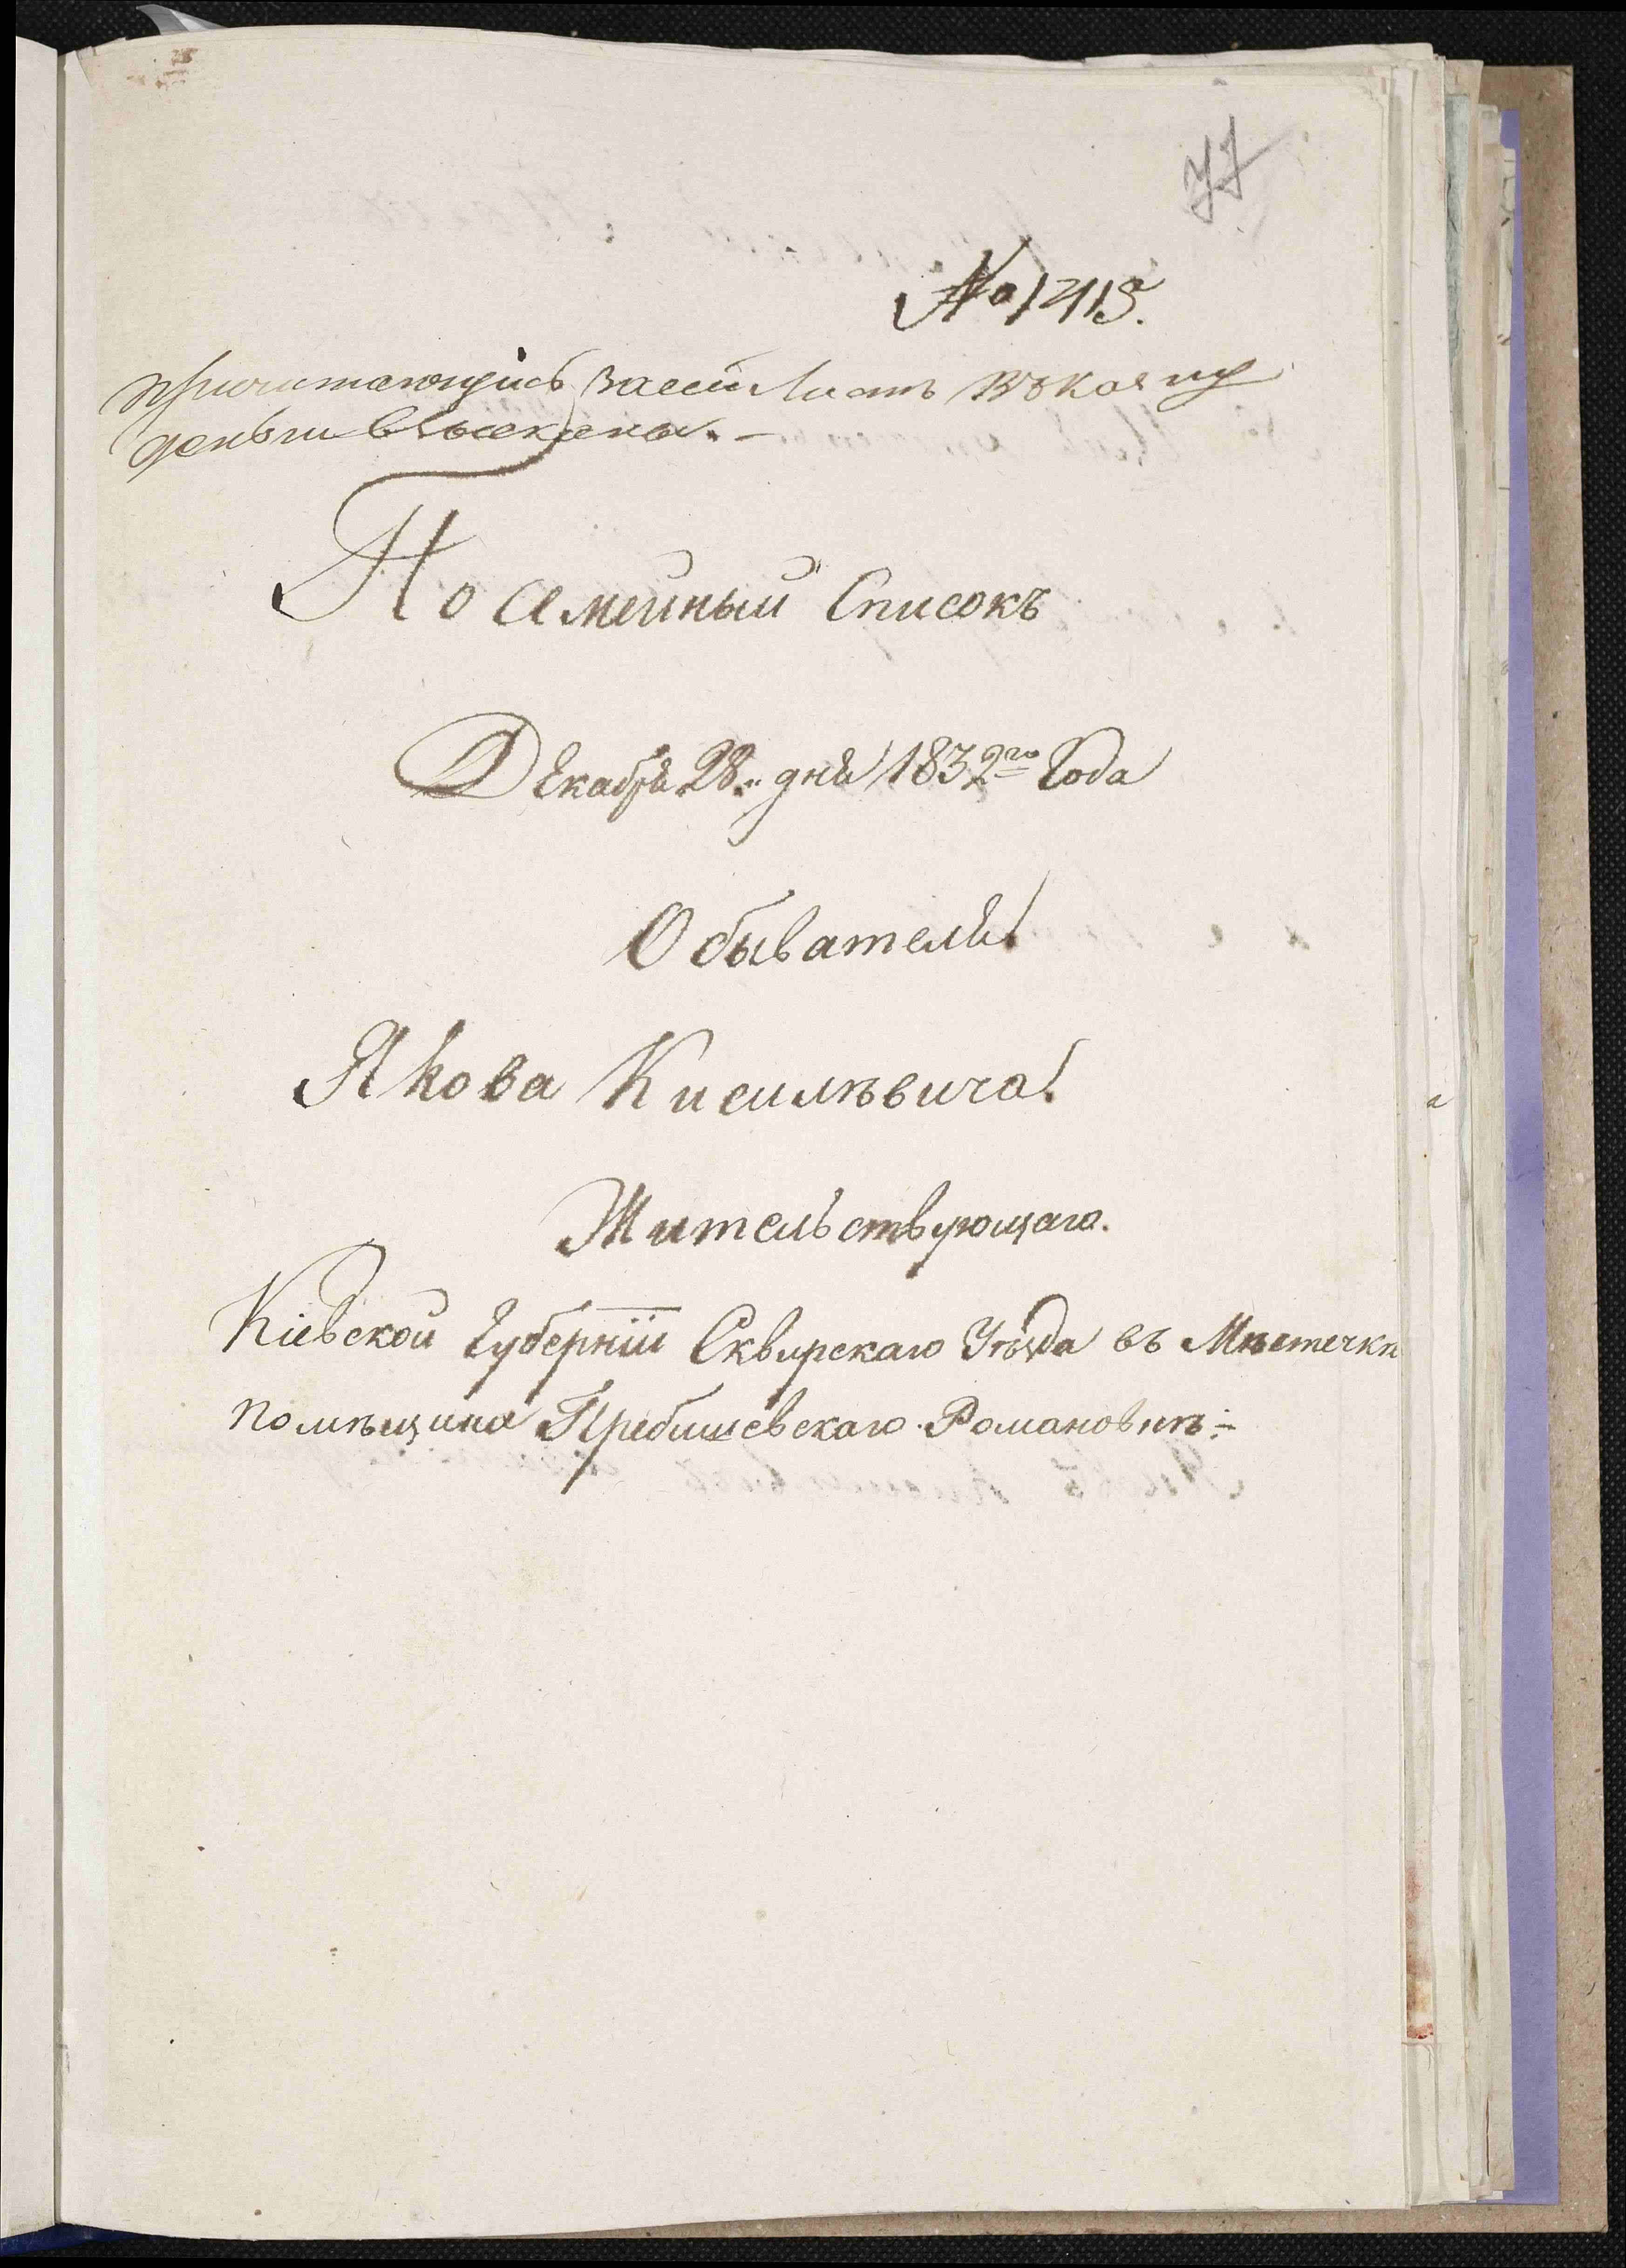 77
№ 1415.
причитающіясь за сей Листъ въ казну
деньги взысканы. –
Посемейный Списокъ
Декабря 28. дня 1832го Года
Обывателя
Якова Кисилѣвича.
Жительствующаго.
Кіевской Губерніи Сквирскаго Уѣзда въ Мѣстечкѣ
помѣщика Пребишевскаго Романовкѣ:-